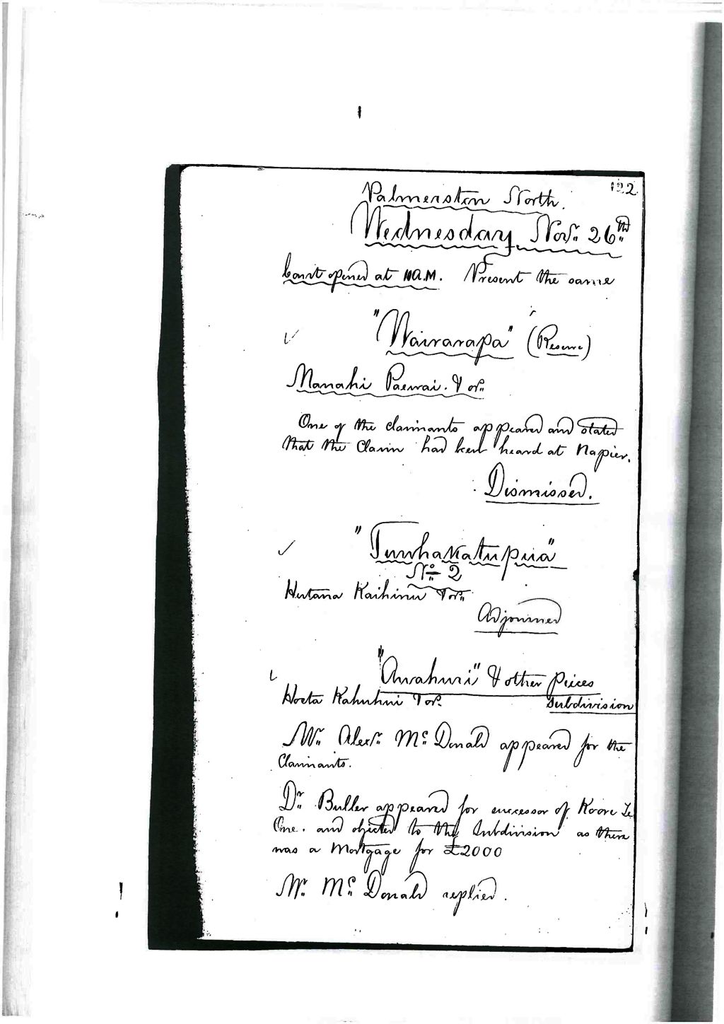 122
Palmerston North.
Wednesday Novr. 26th
Court opened at 10 A.M. Present the same
"Wairarapa" (Reserve)
Manahi Paewai. & ors.
One of the claimants appeared and stated
that the Claim had been heard at Napier.
Dismissed.
"Tuwhakatupua"
No. 2
Hutana Kaihinu & ors.
Adjourned
"Awahuri" & other pieces
Hoeta Kahuhui & ors. Subdivision
Mr. Alexr. McDonald appeared for the
Claimants.
Dr. Buller appeared for successor of Koore Te
One. and objected to the Subdivision as there
was a Mortgage for £2000
Mr. McDonald replied.